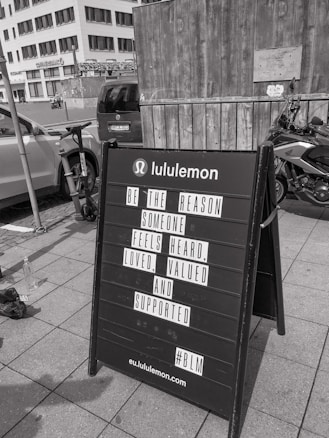 lululemon
BE THE REASON
SOMEONE
FEELS HEARD,
LOVED, VALUED
AND
SUPPORTED
#BLM
eu.lululemon.com